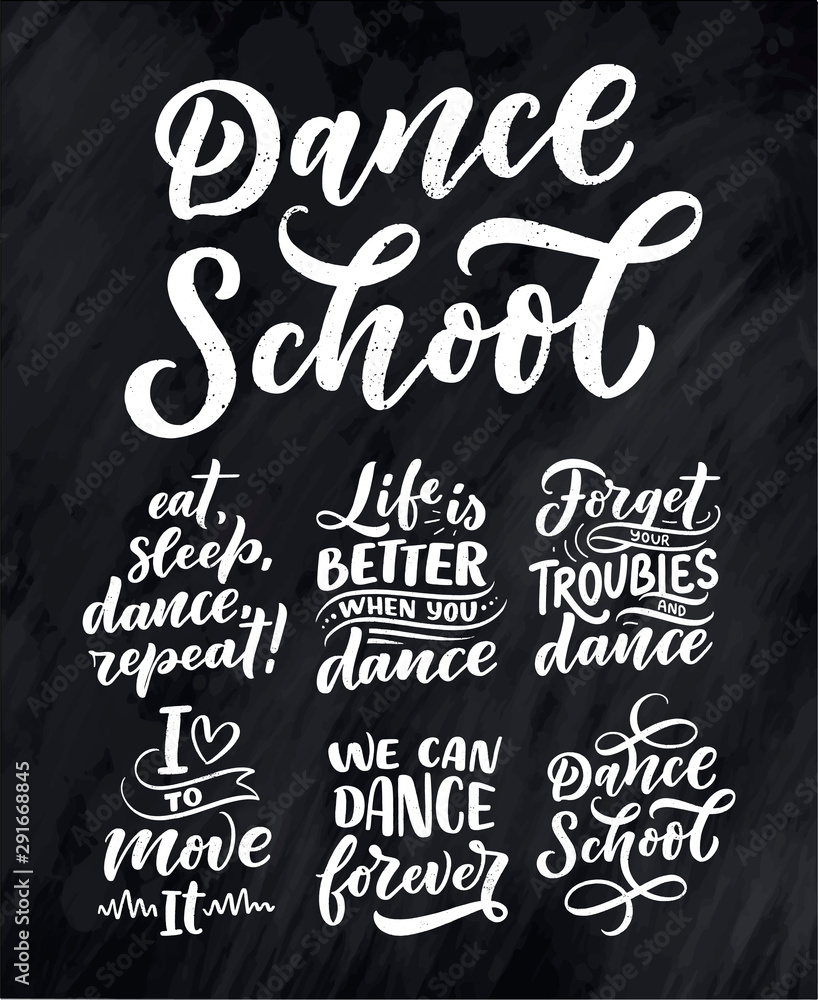 Dance
School
eat,
sleep,
dance,
repeat!
Life is
BETTER
WHEN YOU
dance
Forget
YOUR
TROUBLES
AND
dance
I
TO
move
It
WE CAN
DANCE
forever
Dance
School
Adobe Stock | #291668845